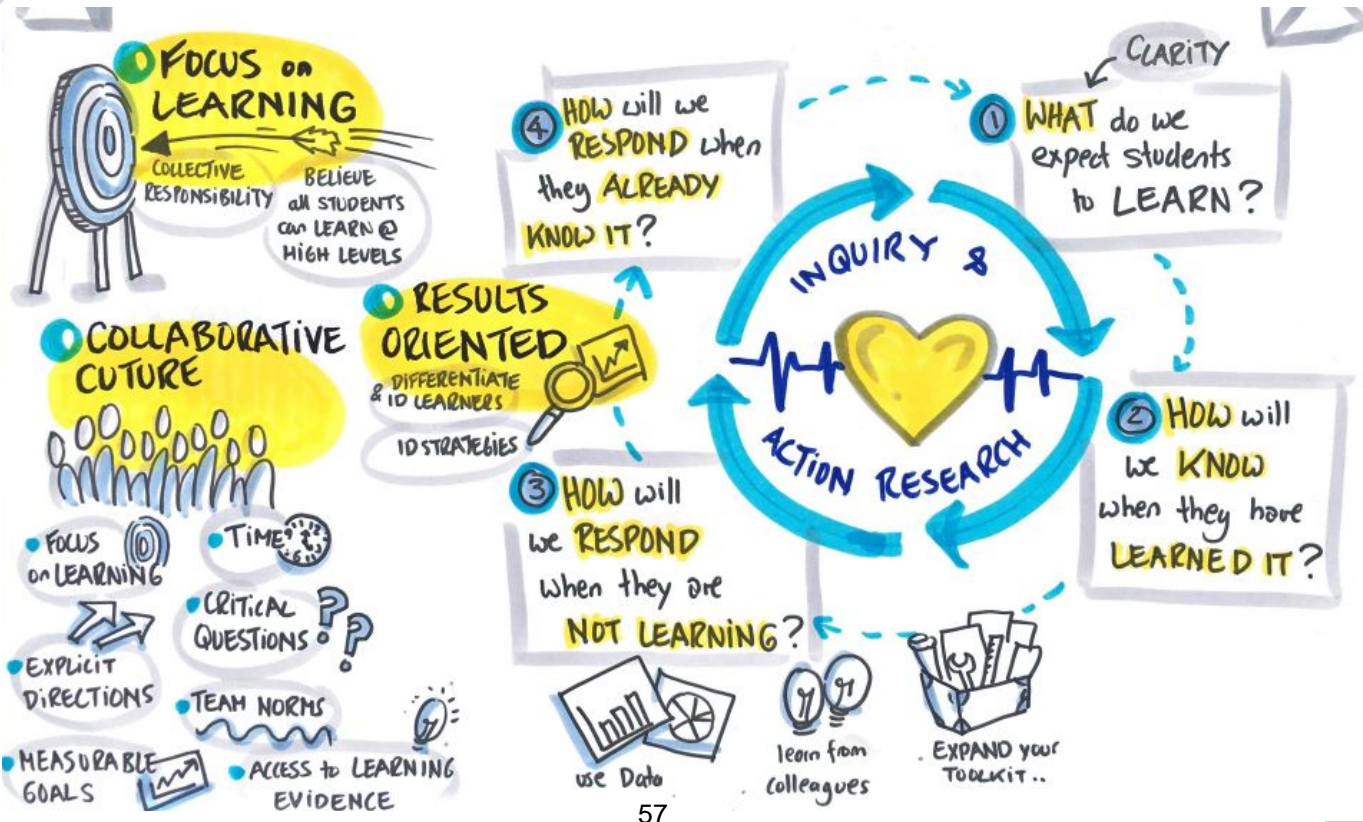 FOCUS on
LEARNING
COLLECTIVE
RESPONSIBILITY
BELIEVE
all STUDENTS
can LEARN @
HIGH LEVELS
COLLABORATIVE
CUTURE
FOCUS
on LEARNING
TIME
CRITICAL
QUESTIONS
EXPLICIT
DIRECTIONS
TEAM NORMS
MEASURABLE
GOALS
ACCESS to LEARNING
EVIDENCE
RESULTS
ORIENTED
& DIFFERENTIATE
ID LEARNERS
ID STRATEGIES
INQUIRY &
ACTION RESEARCH
CLARITY
1 WHAT do we
expect students
to LEARN?
2 HOW will
we KNOW
when they have
LEARNED IT?
3 HOW will
we RESPOND
when they are
NOT LEARNING?
4 HOW will we
RESPOND when
they ALREADY
KNOW IT?
use Data
learn from
colleagues
EXPAND your
TOOLKIT..
57